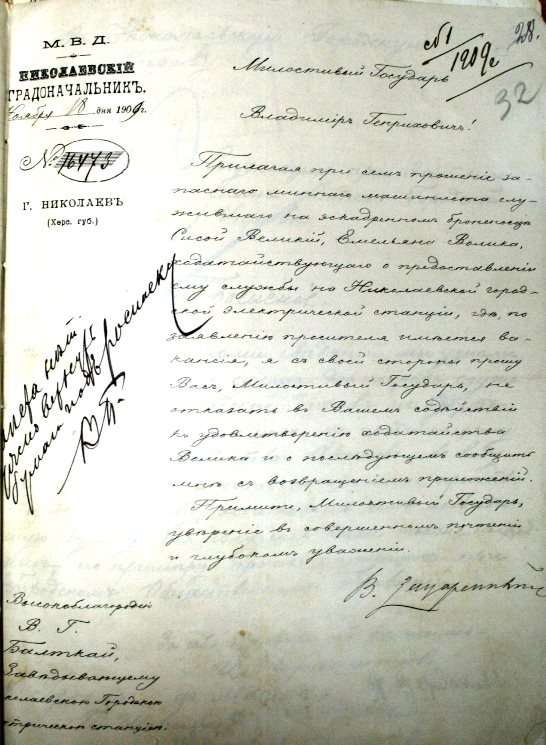 М. В. Д.
НИКОЛАЕВСКІЙ
ГРАДОНАЧАЛЬНИКЪ.
Ноября 18 дня 1909 г.
№ 16473
Г. НИКОЛАЕВЪ
(Херс. губ.)
1909 г
28.
32
Милостивый Государь
Владиміръ Генриховичъ!
Прилагая при семъ прошеніе за-
паснаго миннаго машиниста слу-
жившаго на эскадренномъ броненосцѣ
Сисой Великій, Емельяна Волика,
ходатайствующаго о предоставленіи
ему службы на Николаевской город-
ской электрической станціи, гдѣ, по
заявленію просителя имѣется ва-
кансія, я съ своей стороны прошу
Васъ, Милостивый Государь, не
отказать въ Вашемъ содѣйствіи
къ удовлетворенію ходатайства
Волика и о послѣдующемъ сообщить
мнѣ съ возвращеніемъ приложеній.
Примите, Милостивый Государь,
увѣреніе въ совершенномъ почтеніи
и глубокомъ уваженіи.
Высокоблагородію
В. Г.
Завѣдывающему
колаевскою Городскою
ктрической станціею.